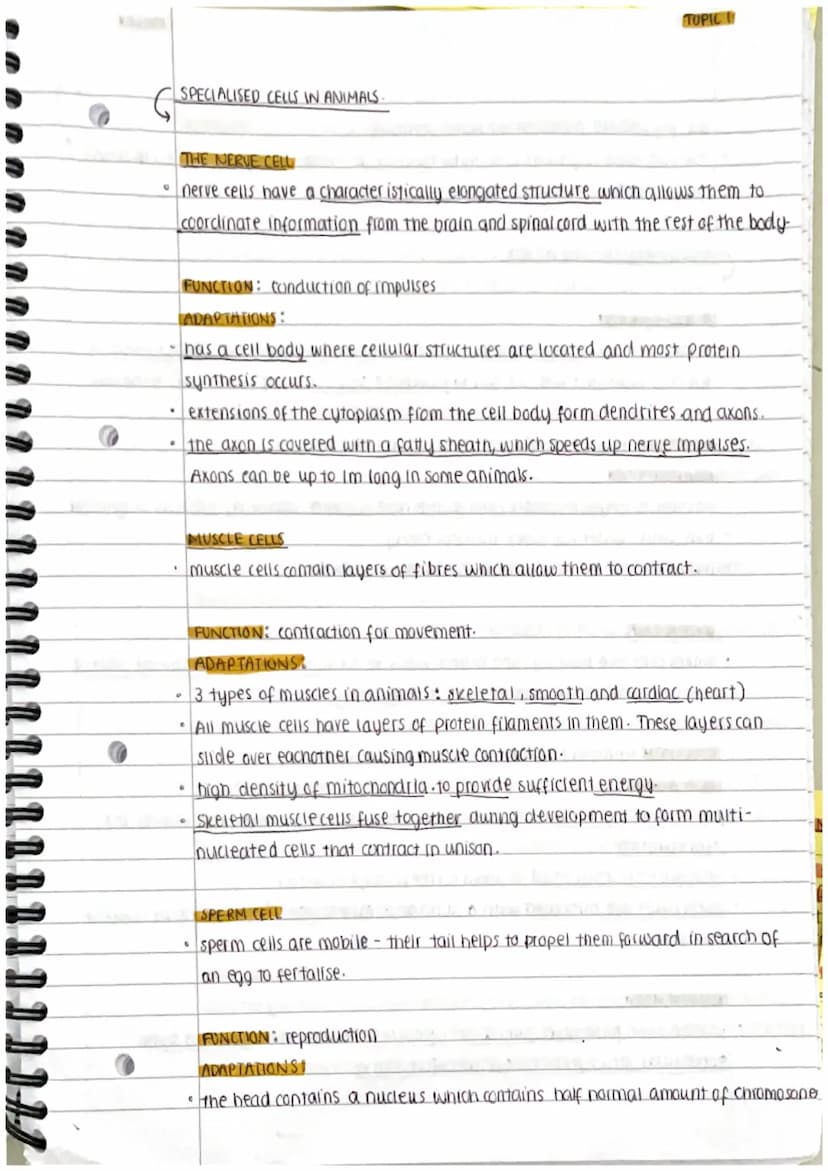 TOPIC 1
SPECIALISED CELLS IN ANIMALS.
THE NERVE CELL
• nerve cells have a characteristically elongated structure which allows them to
coordinate information from the brain and spinal cord with the rest of the body
FUNCTION: conduction of impulses
ADAPTATIONS:
• has a cell body where cellular structures are located and most protein
synthesis occurs.
• extensions of the cytoplasm from the cell body form dendrites and axons.
• the axon is covered with a fatty sheath, which speeds up nerve impulses.
Axons can be up to 1m long in some animals.
MUSCLE CELLS
• muscle cells contain layers of fibres which allow them to contract.
FUNCTION: contraction for movement.
ADAPTATIONS:
• 3 types of muscles in animals: skeletal, smooth and cardiac (heart)
• All muscle cells have layers of protein filaments in them. These layers can
slide over eachother causing muscle contraction.
• high density of mitochondria. to provide sufficient energy
• skeletal muscle cells fuse together during development to form multi-
nucleated cells that contract in unison.
SPERM CELL
• sperm cells are mobile - their tail helps to propel them forward in search of
an egg to fertalise.
FUNCTION: reproduction
ADAPTATIONS:
• the head contains a nucleus which contains half normal amount of chromosone